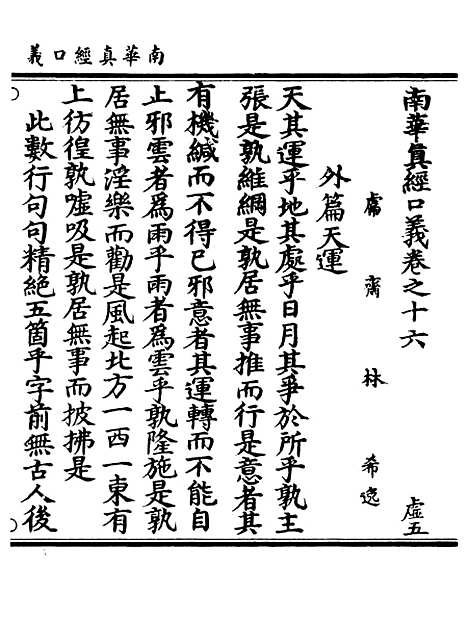 南華真經口義
南華眞經口義卷之十六 虛五
鬳齋林希逸
外篇天運
天其運乎地其處乎日月其爭於所乎孰主
張是孰維綱是孰居無事推而行是意者其
有機緘而不得已邪意者其運轉而不能自
止邪雲者為雨乎雨者為雲乎孰隆施是孰
居無事淫樂而勸是風起北方一西一東有
上彷徨孰噓吸是孰居無事而披拂是
此數行句句精絕五箇乎字前無古人後